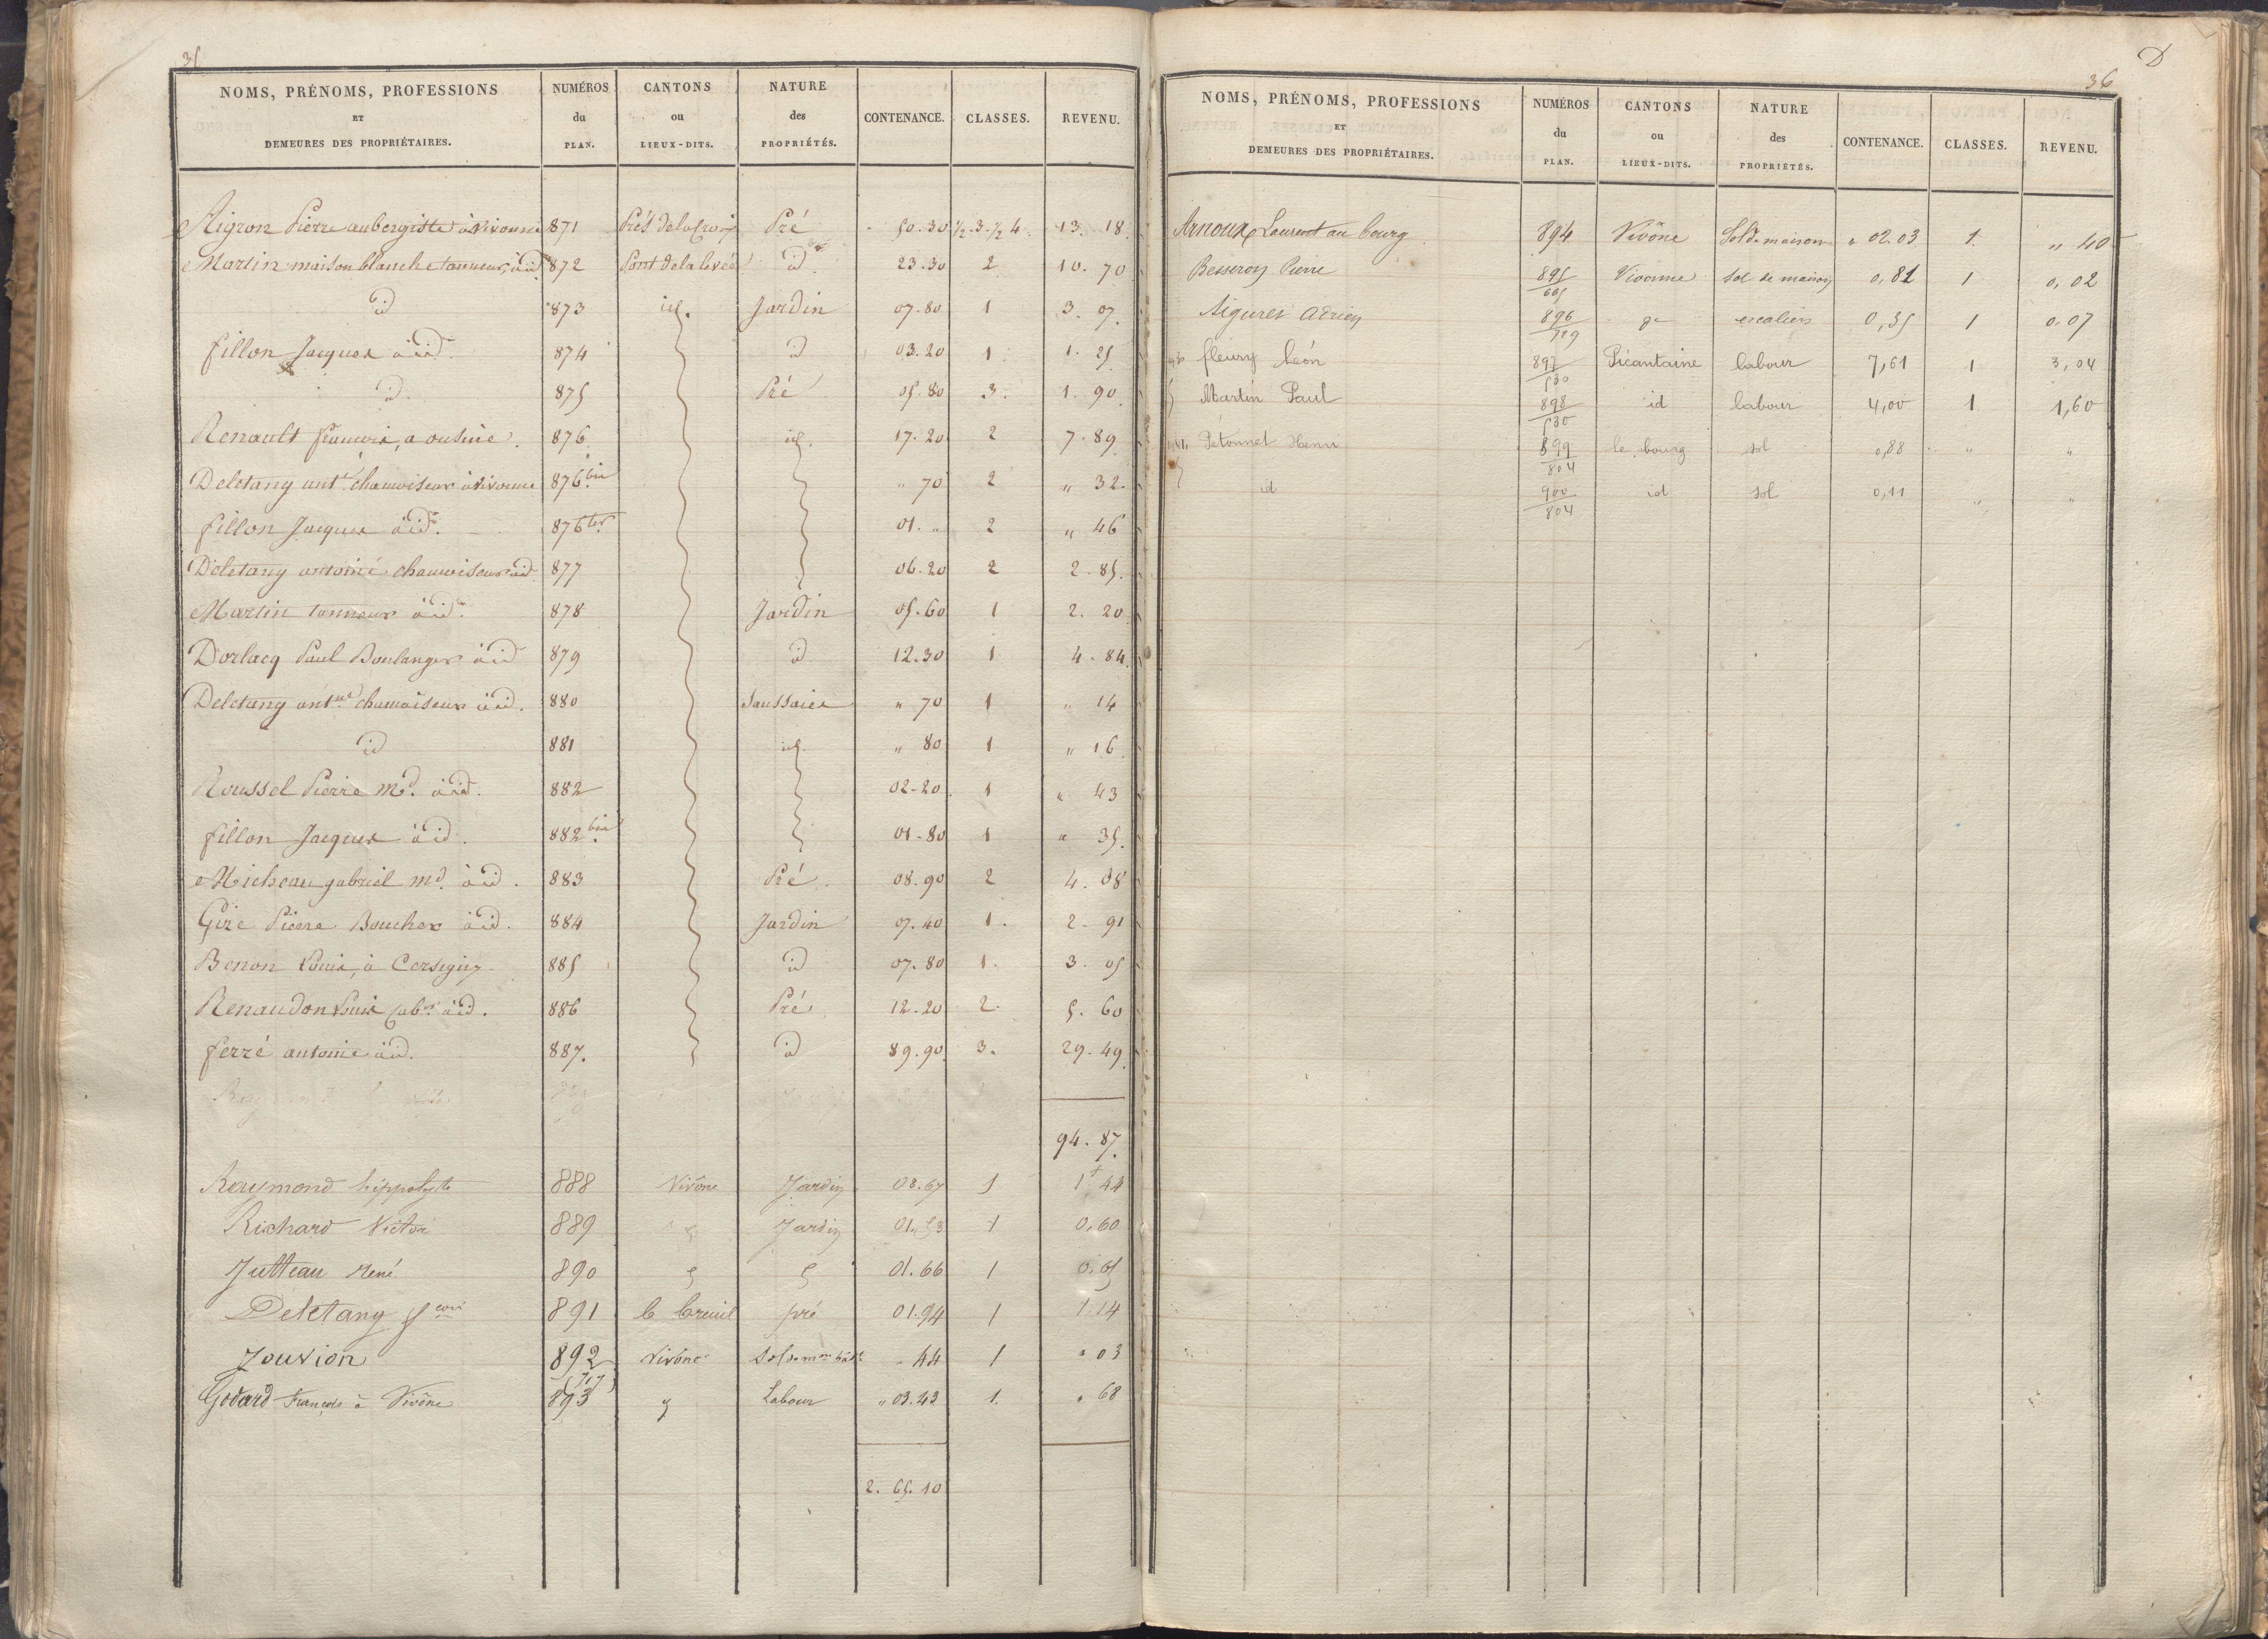 35
NOMS, PRÉNOMS, PROFESSIONS ET DEMEURES DES PROPRIÉTAIRES. NUMÉROS du PLAN. CANTONS ou LIEUX-DITS. NATURE des PROPRIÉTÉS. CONTENANCE. CLASSES. REVENU.
Aigron Pierre aubergiste à Vivonne 871 Prés de la Croix Pré 50.30 1/2 3. 1/2 4. 13. 18.
Martin maison blanche tanneur, à id 872 Pont de la levée id 23.30 2 10. 70
id 873 id. Jardin 07.80 1 3. 07
fillon Jacques à id. 874 id 03.20 1 1. 25
id. 875 Pré 05.80 3. 1. 90
Renault françois, a 876 id. 17.20 2 7. 89
Deletang ant.e chamoiseur à Vivonne 876 bis " 70 2 " 32
fillon Jacques à id. 876 ter 01. " 2 " 46
Deletang antoine chamoiseur à id. 877 06.20 2 2. 85.
Martin tanneur à id. 878 Jardin 05.60 1 2. 20
Dorlacq Paul Boulanger à id 879 id 12.30 1 4. 84
Deletang ant.ne chamoiseur à id. 880 Saussaies " 70 1 " 14
id 881 id. " 80 1 " 16
Roussel Pierre Md. à id. 882 02-20 1 " 43
fillon Jacques à id. 882 bis 01-80 1 " 35.
Micheau gabriel md. à id. 883 Pré 08.90 2 4. 08
Giré Pierre Boucher à id. 884 Jardin 07.40 1. 2. 91
Benon Louis, à Cersigny 885 id 07.80 1. 3. 05
Renaudon Louis à id. 886 Pré 12.20 2. 5. 60
ferré antoine à id. 887. id 89.90 3. 29. 49
94. 87.
Raymond hippolyte 888 Vivône Jardin 03.67 1 1 44
Richard Victor 889 Jardin 01.53 1 0.60
Jutteau René 890 01.66 1 0.65
Deletang 891 le breuil pré 01.94 1 1.14
Jouvion 892 Vivône - 44 1 " 03
Godard François à Vivône 893 Labour " 03.43 1. " 68
2. 65. 10
D
36
NOMS, PRÉNOMS, PROFESSIONS ET DEMEURES DES PROPRIÉTAIRES. NUMÉROS du PLAN. CANTONS ou LIEUX-DITS. NATURE des PROPRIÉTÉS. CONTENANCE. CLASSES. REVENU.
Arnoux Laurent au bourg 894 Vivône Sol de maison " 02.03 1. " 40
Besseron Pierre 895/665 Vivonne sol de maison 0,81 1 0,02
Aiguret Adrien 896/729 escaliers 0,35 1 0.07
fleury Léon 897/530 Picantaine labour 7,61 1 3,04
Martin Paul 898/530 id labour 4,00 1 1,60
Pétonnet Henri 899/804 le bourg sol 0,88 " "
id 900/804 id sol 0,11 " "